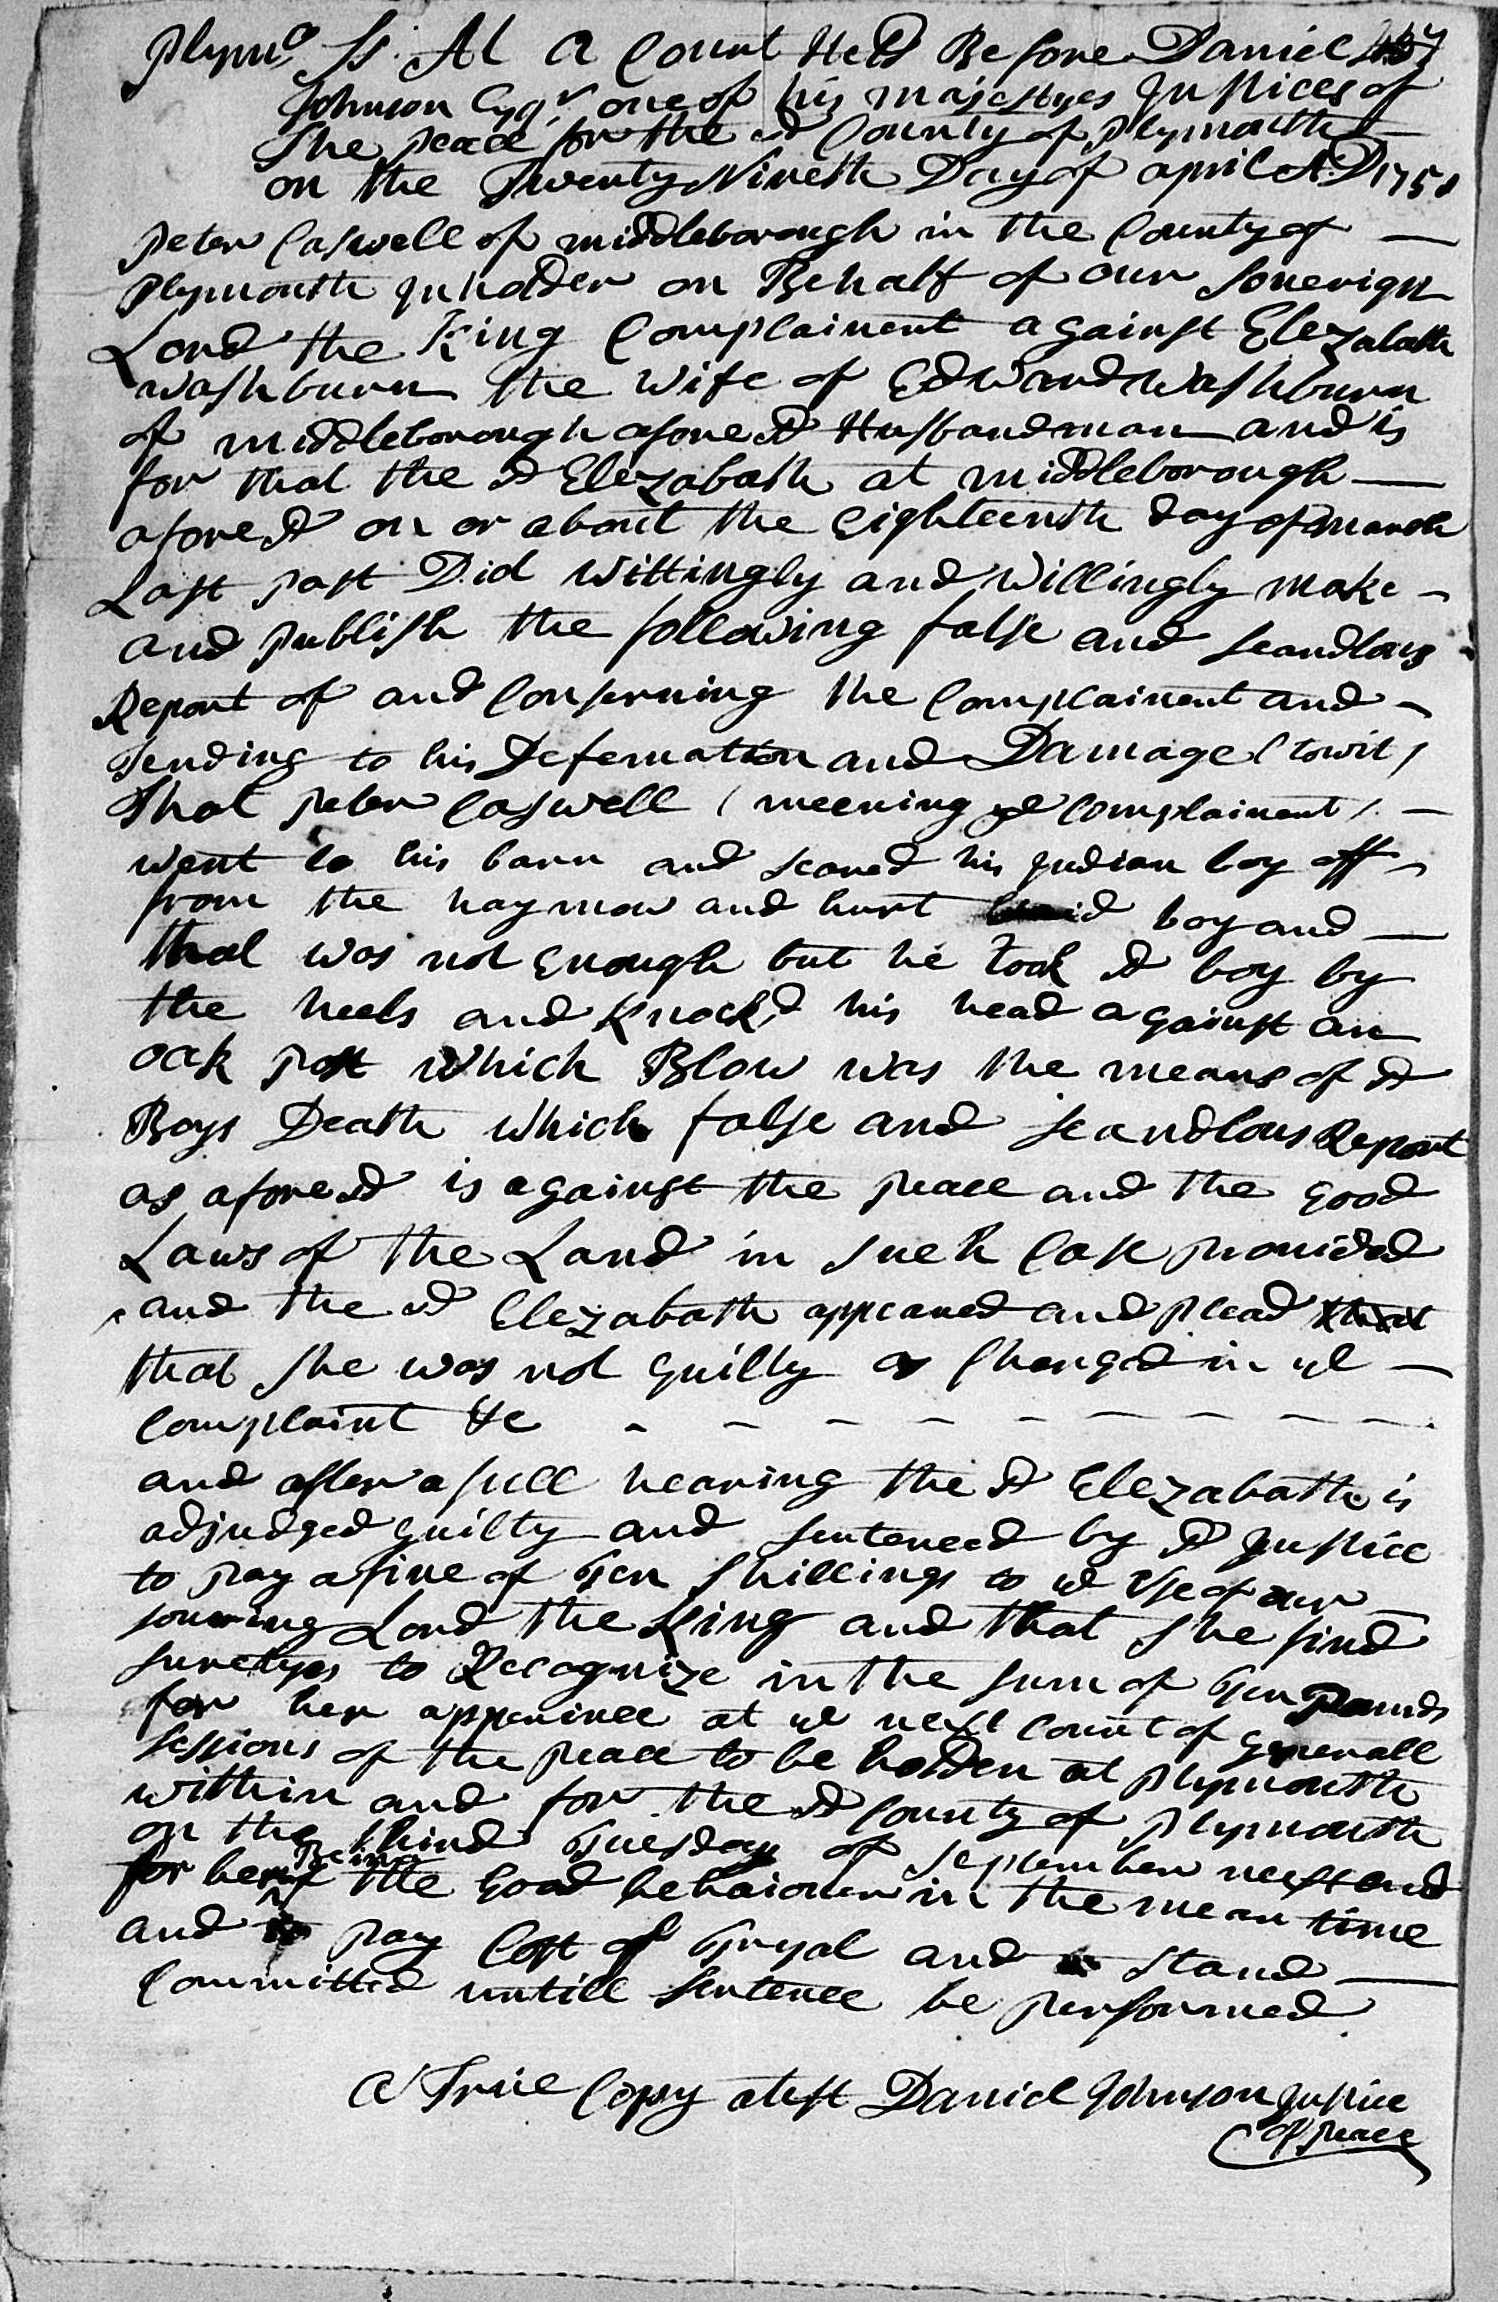 Plymo Ss. At a Court Held Before Daniel
Johnson Esqr. one of his majestyes Justices of
the peace for the sd County of Plymouth
on the Twenty Nineth Day of april A:D 1758
Peter Caswell of middleborough in the County of —
Plymouth Inholder on Behalf of our Soverign
Lord the King Complainent against Elezabath
washburn the wife of Edward Washburn
of middleborough afore sd Husbandman and is
for that the sd Elezabath at middleborough —
afore sd on or about the eighteenth day of march
Last past Did wittingly and willingly make -
and publish the following false and scandlous
Report of and Conserning the Complainent and -
Tending to his Defemation and Damage (towit)
That Peter Caswell (meening ye Complainent) —
went to his barn and scared his Indian boy off -
from the haymow and hurt said boy and —
that was not enough but he took sd boy by
the heels and knock,d his head against an
oak post which Blow was the means of sd
Boys Death which false and scandlous Report
as afore sd is against the peace and the good
Laws of the Land in such Case provided
and the sd Elezabath appeared and plead that
that she was not guilty as Charged in ye —
Complaint &c - - - - - - - - -
and after a full hearing the sd Elezabath is
adjudged guilty and sentenced by sd Justice
to pay a fine of Ten Shillings to ye Use of our
sovering Lord the King and that she find
suretyes to Recognize in the sum of Ten Pounds
for her apperince at ye next Court of generall
sessions of the peace to be holden at Plymouth
within and for the sd County of Plymouth
on the third Tuesday of September next and
for her Being of the Good behaiour in the mean time
and pay Cost of Tryal and stand —
Committed untill sentence be performed
A True Copy atest Daniel Johnson Justice
of Peace